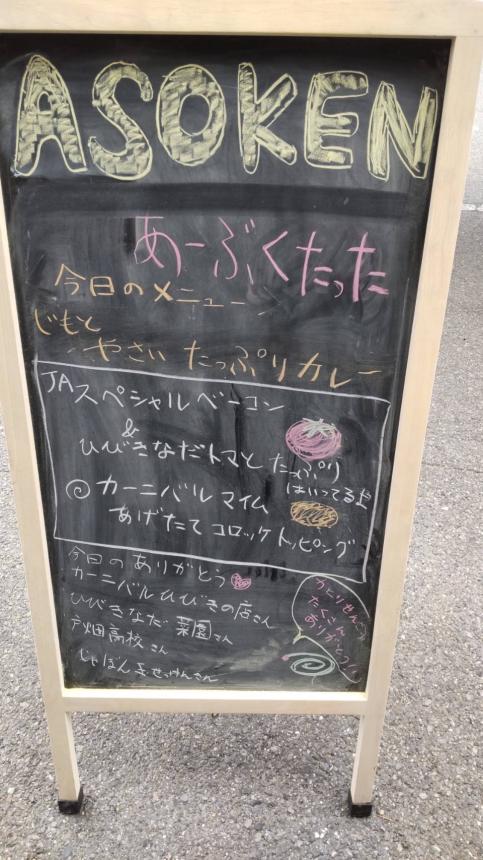 ASOKEN
あーぶくたった
今日のメニュー
じもと
やさい たっぷりカレー
JAスペシャルベーコン
&
ひびきなだトマト たっぷり
はいってるよ
カーニバル マイム
あげたて コロッケ トッピング
今日の ありがとう
カーニバルひびきの店さん
ひびきなだ 菜園さん
戸畑高校 さん
じゃぽん せっけんさん
かとりせんこう
たくさん
ありがとう